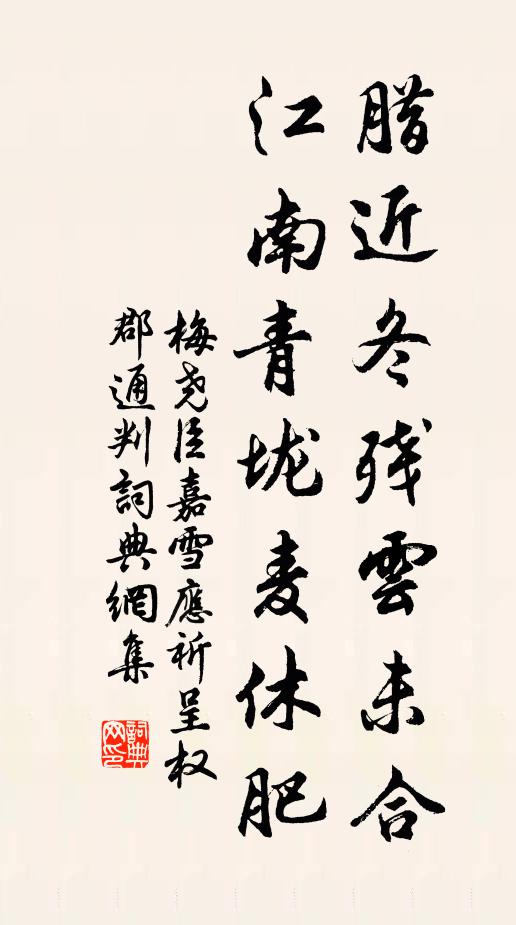 腊近冬残雲未合
江南青垅麦休肥
梅尧臣嘉雪應祈呈权
郡通判詞典網集
詞典
网印